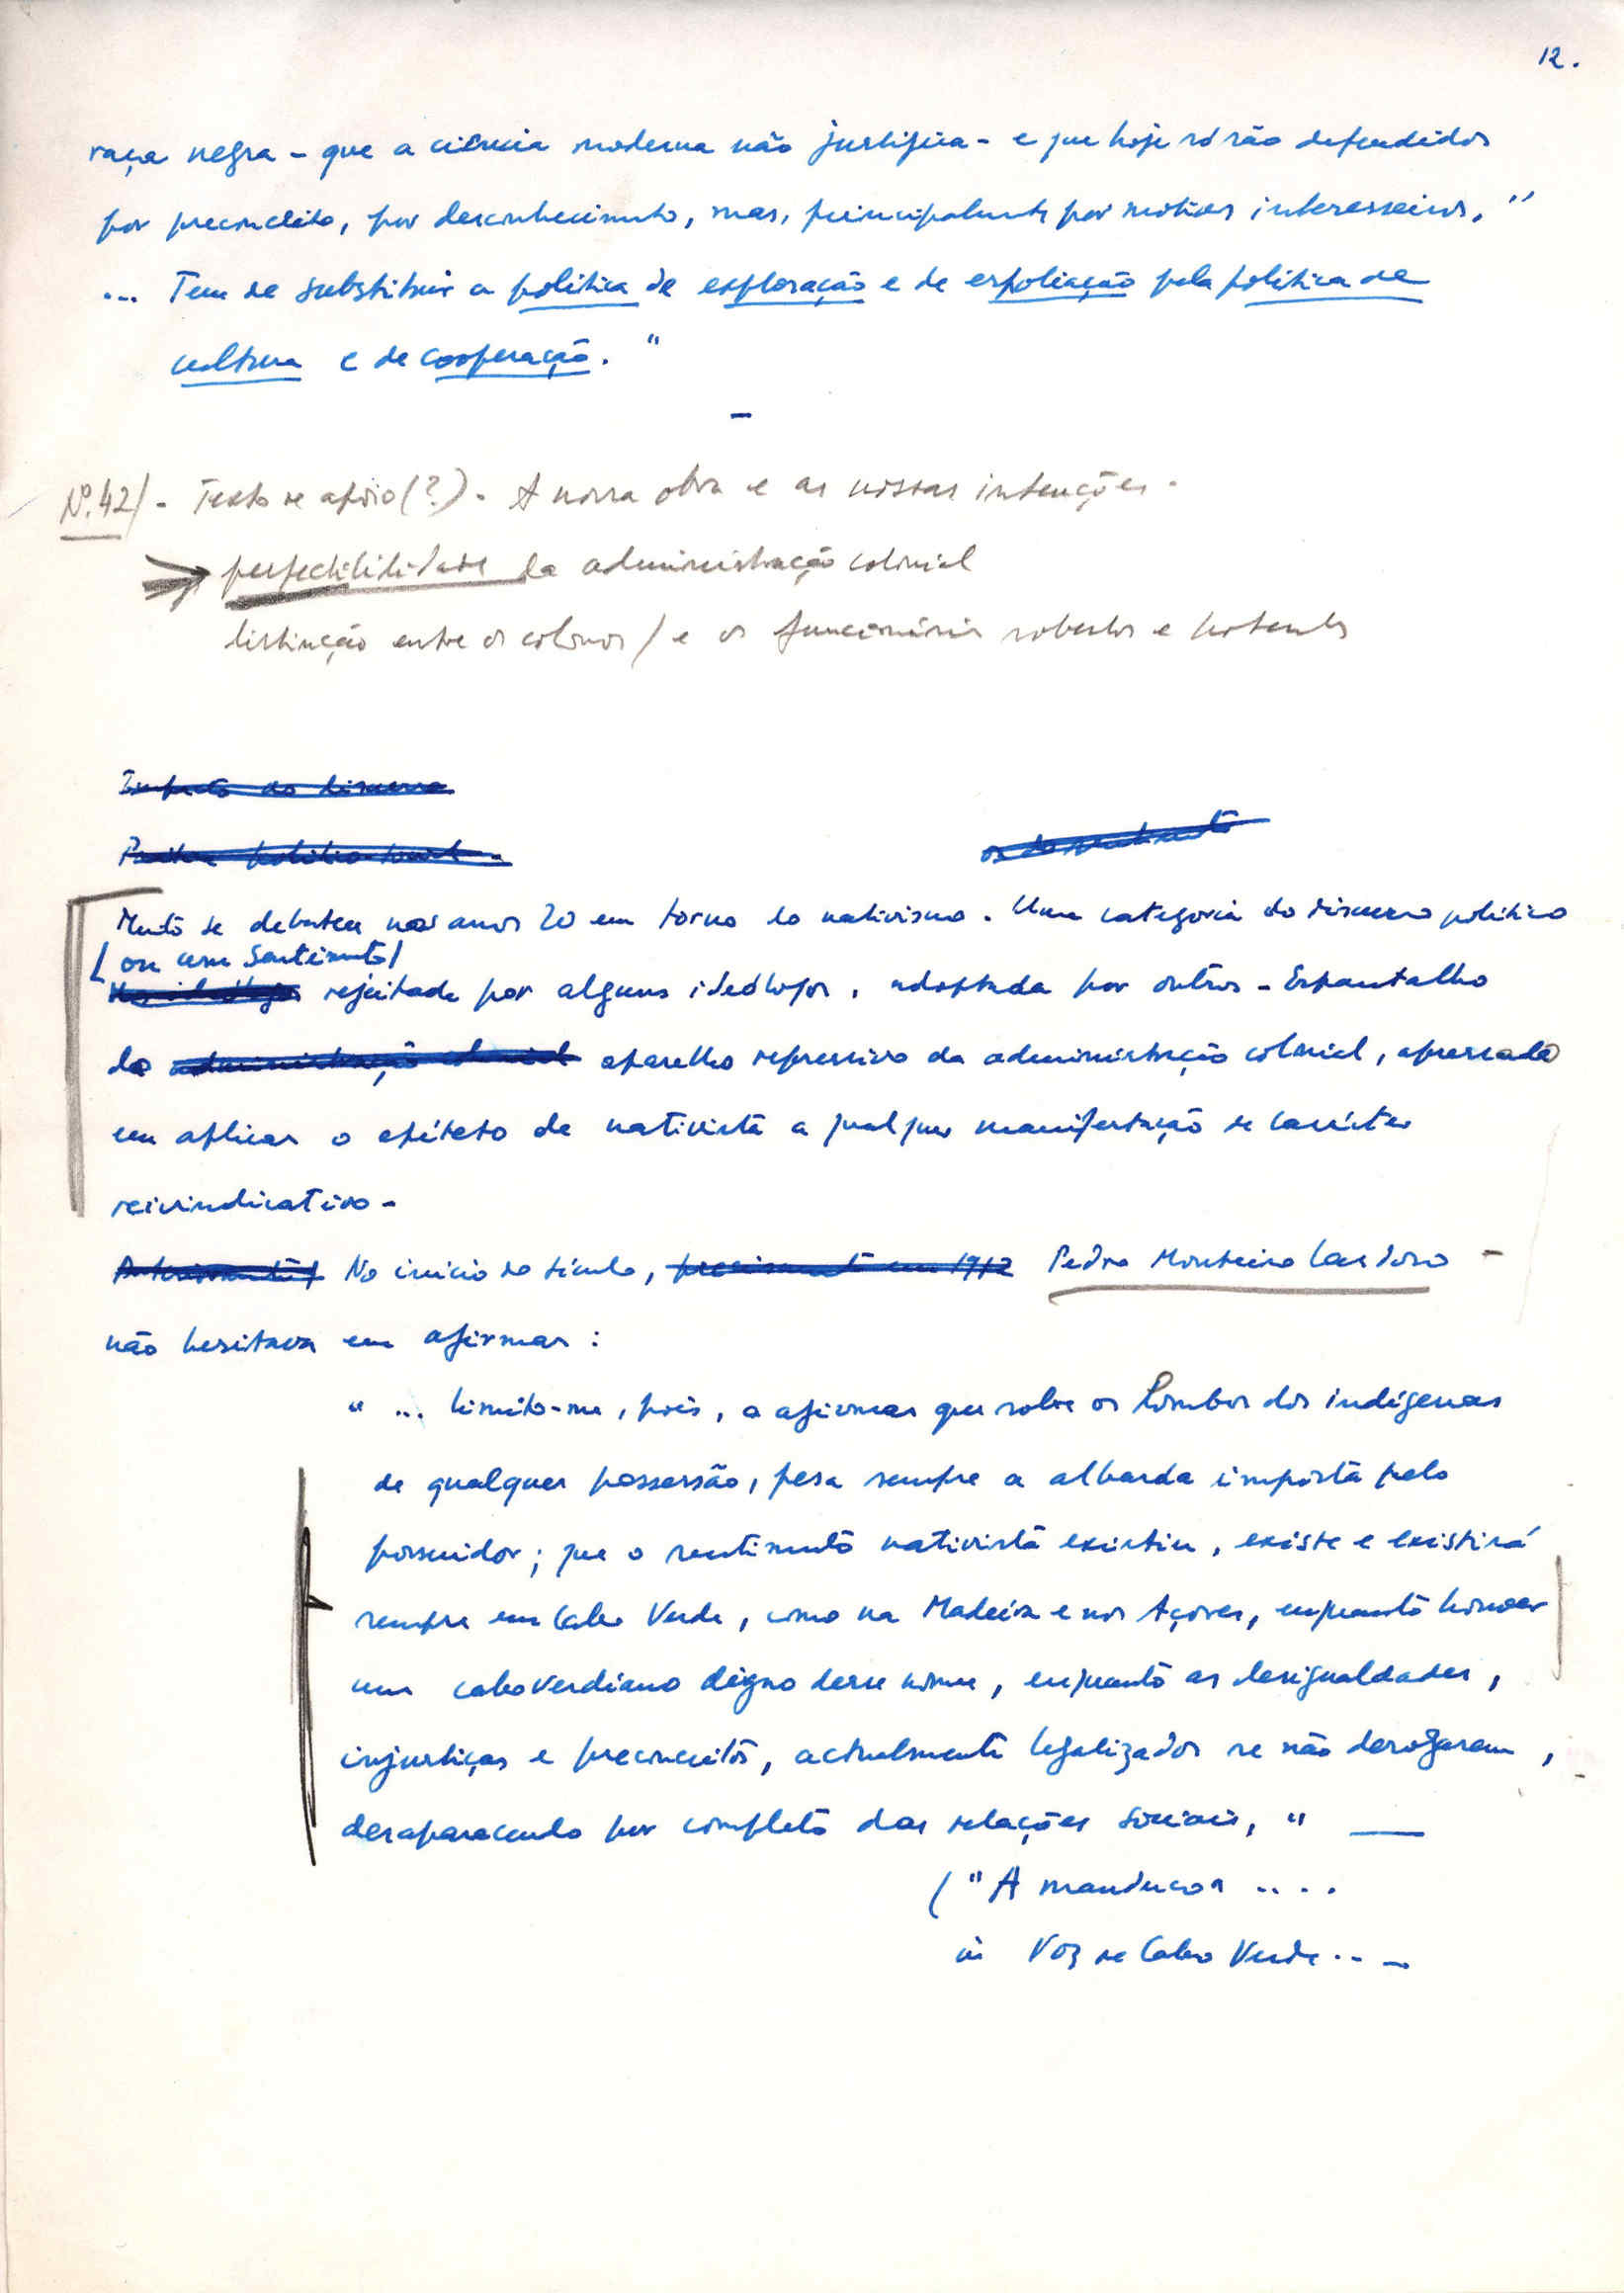 12.
raça negra - que a ciência moderna não justifica - e que hoje só são defendidos
por preconceito, por desconhecimento, mas, principalmente por motivos interesseiros."
... Tem de substituir a política de exploração e de espoliação pela política de
cultura e de cooperação."
-
Nº.42/- Texto de apoio (?) - A nossa obra e as nossas intenções -
perfectibilidade da administração colonial
distinção entre os colonos / e os funcionários robustos e
Impacto do discurso
Prática política-social -
os do sentimento
Muito se debateu nos anos 20 em torno do nativismo. Uma categoria do discurso político
(ou um sentimento)
rejeitada por alguns ideólogos, adoptada por outros - Espantalho
do administração colonial aparelho repressivo da administração colonial, apressado
em aplicar o epíteto de nativista a qualquer manifestação de carácter
reivindicativo -
No início do século, precisamente em 1912 Pedro Monteiro Cardoso -
não hesitava em afirmar :
" ... limito-me, pois, a afirmar que sobre os lombos dos indígenas
de qualquer possessão, pesa sempre a albarda imposta pelo
possuidor ; que o sentimento nativista existiu, existe e existirá
sempre em Cabo Verde, como na Madeira e nos Açores, enquanto houver
um caboverdiano digno desse nome, enquanto as desigualdades,
injustiças e preconceitos, actualmente legalizados se não derogarem,
desaparecendo por completo das relações sociais, "
("A manduco ....
in Voz de Cabo Verde ...